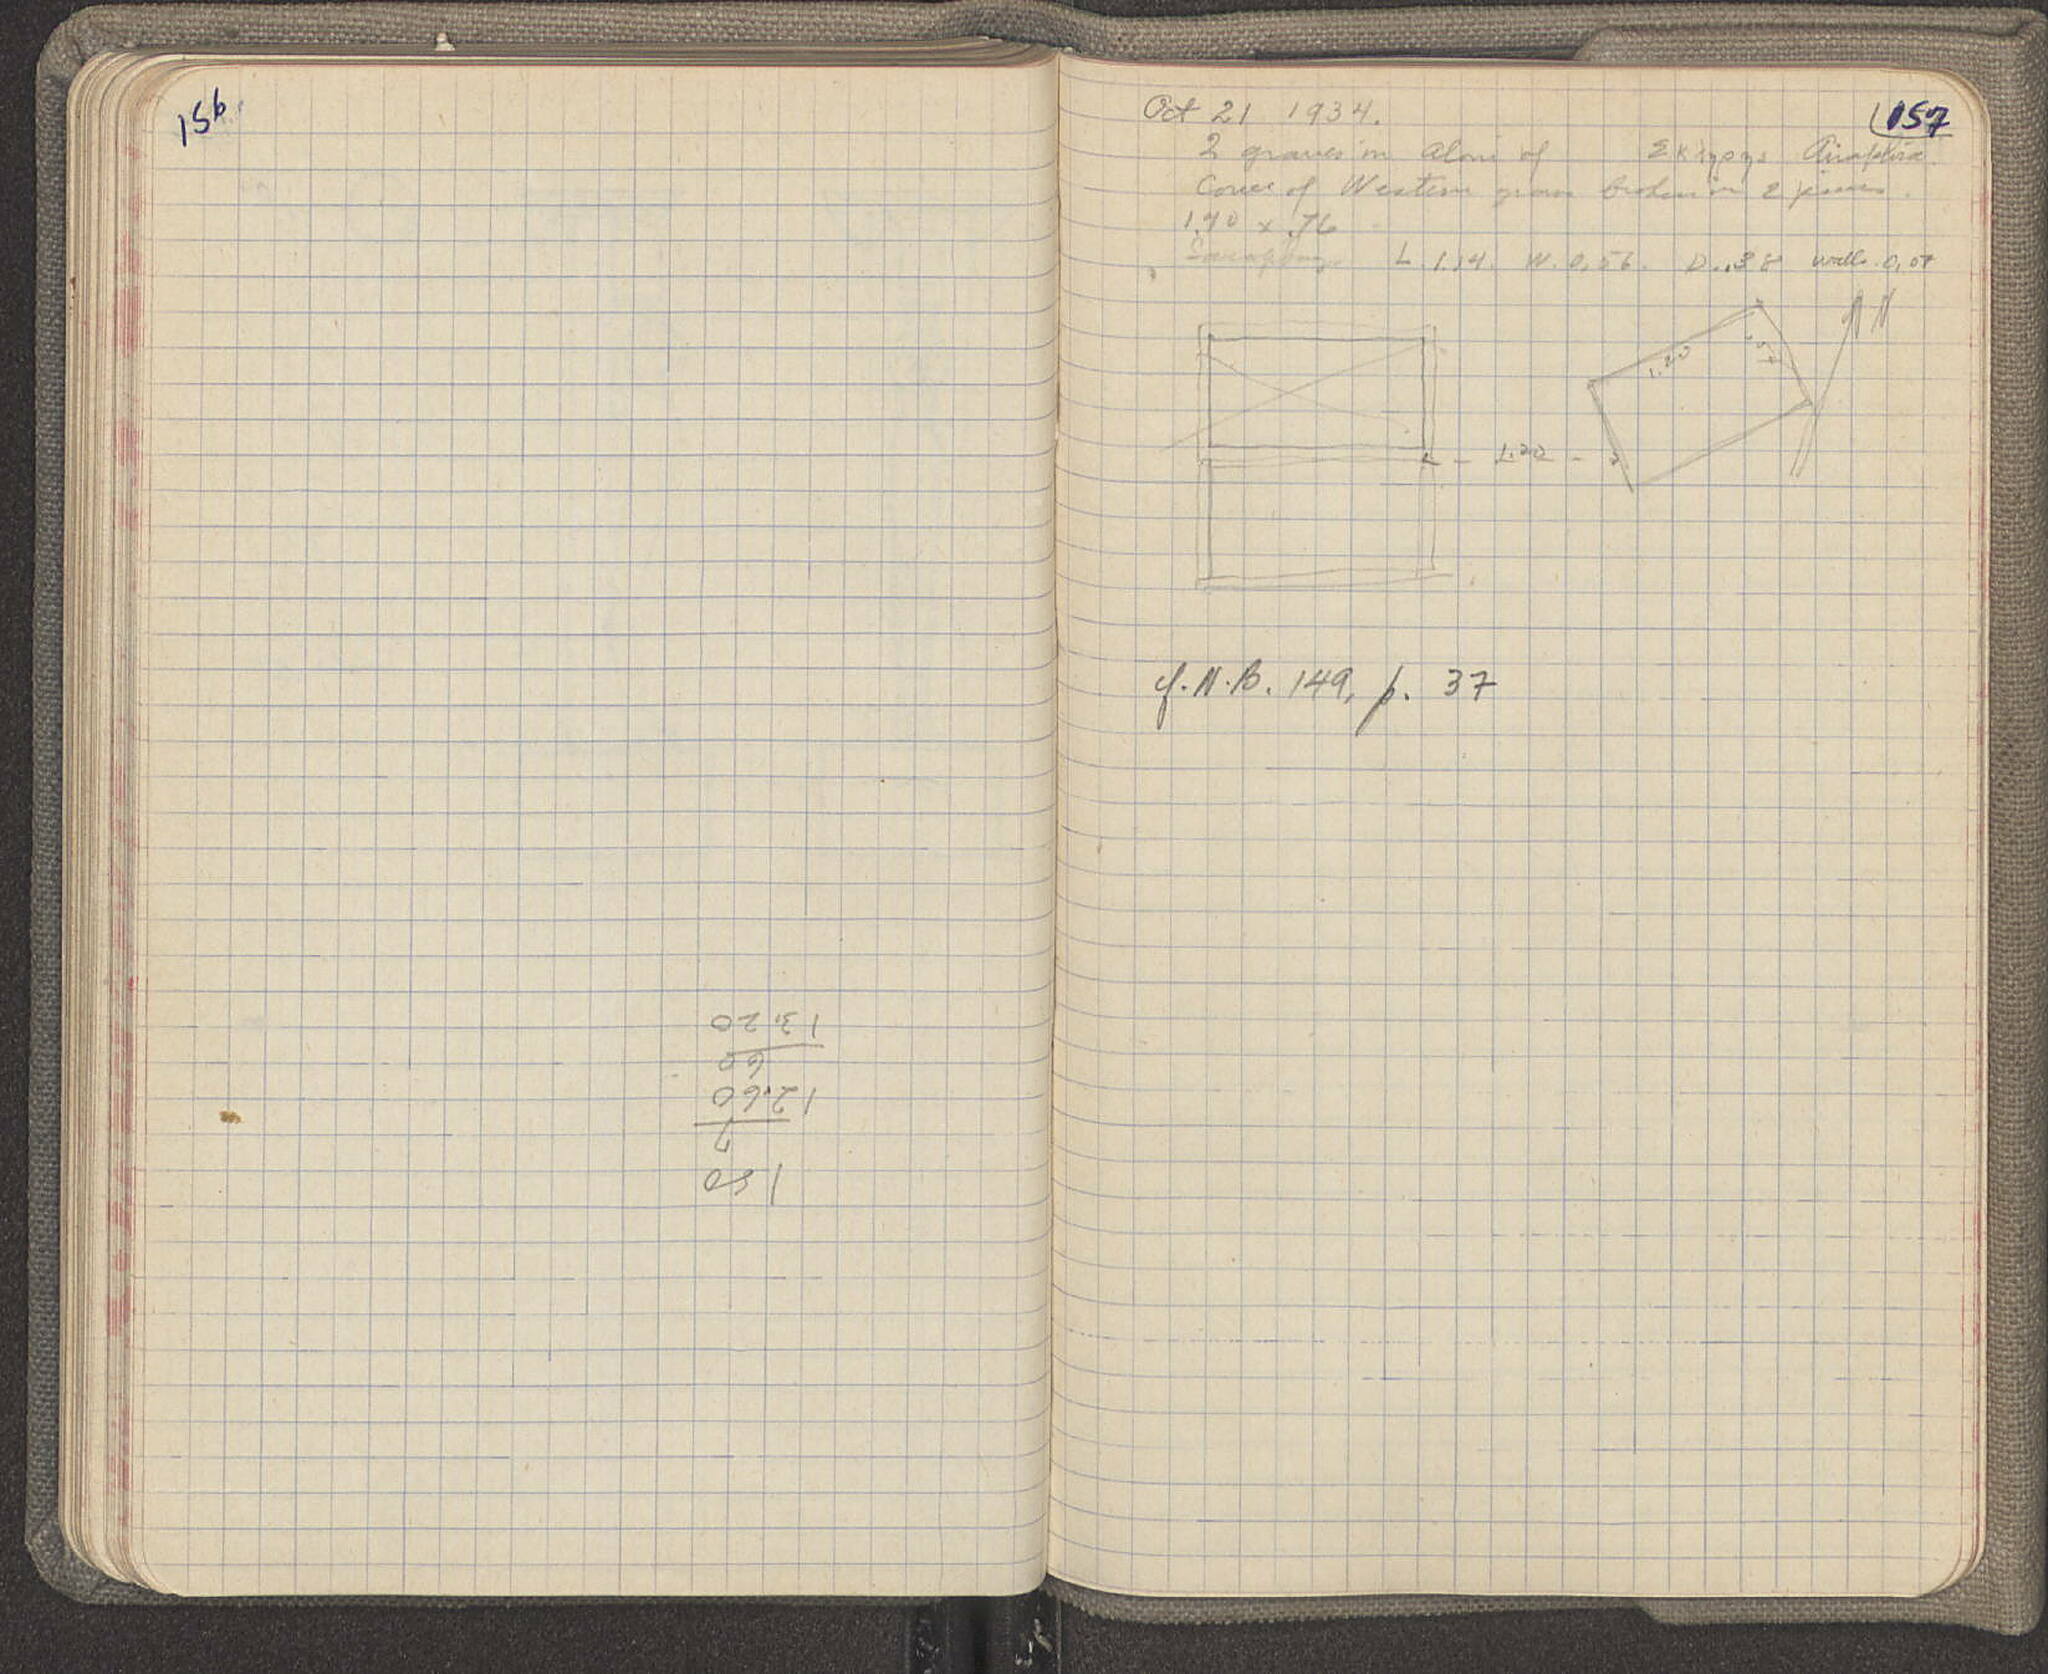 156
13.20
60
12.60
7
180
157
Oct 21 1934.
2 graves in Aloni of
Cover of Western grave broken in 2 pieces.
1.40 x .76
L. 1.14. W. 0,56. D. .38 walls 0,07
N
1.20
1.20
cf. N.B. 149, p. 37